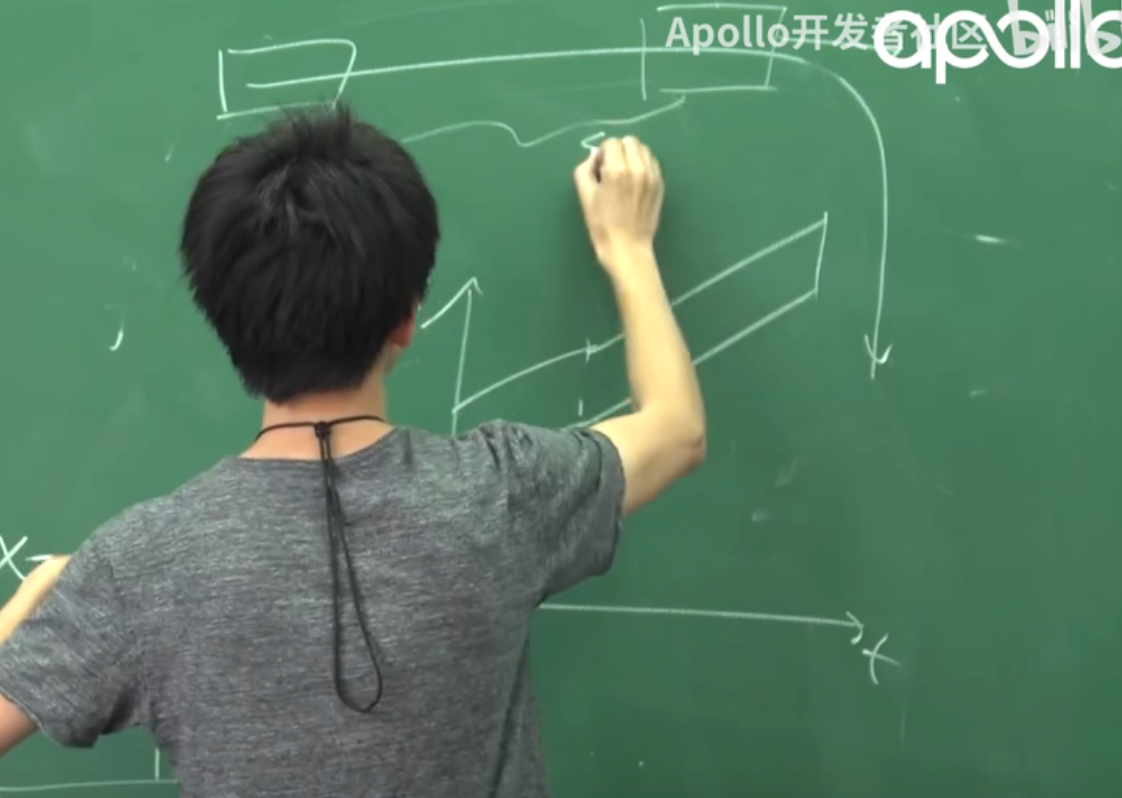 Apollo开发者社区 apollo
X
t